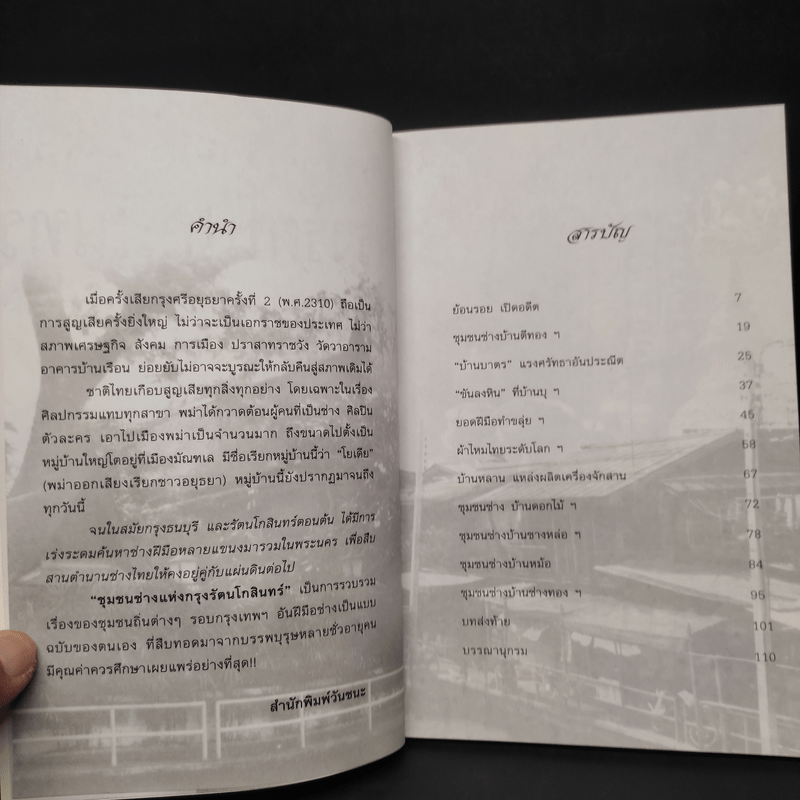 คำนำ
เมื่อครั้งเสียกรุงศรีอยุธยาครั้งที่ 2 (พ.ศ.2310) ถือเป็น
การสูญเสียครั้งยิ่งใหญ่ ไม่ว่าจะเป็นเอกราชของประเทศ ไม่ว่า
สภาพเศรษฐกิจ สังคม การเมือง ปราสาทราชวัง วัดวาอาราม
อาคารบ้านเรือน ย่อยยับไม่อาจจะบูรณะให้กลับคืนสู่สภาพเดิมได้
ชาติไทยเกือบสูญเสียทุกสิ่งทุกอย่าง โดยเฉพาะในเรื่อง
ศิลปกรรมแทบทุกสาขา พม่าได้กวาดต้อนผู้คนที่เป็นช่าง ศิลปิน
ตัวละคร เอาไปเมืองพม่าเป็นจำนวนมาก ถึงขนาดไปตั้งเป็น
หมู่บ้านใหญ่โตอยู่ที่เมืองมัณฑเล มีชื่อเรียกหมู่บ้านนี้ว่า “โยเดีย”
(พม่าออกเสียงเรียกชาวอยุธยา) หมู่บ้านนี้ยังปรากฏมาจนถึง
ทุกวันนี้
จนในสมัยกรุงธนบุรี และรัตนโกสินทร์ตอนต้น ได้มีการ
เร่งระดมค้นหาช่างฝีมือหลายแขนงมารวมในพระนคร เพื่อสืบ
สานตำนานช่างไทยให้คงอยู่คู่กับแผ่นดินต่อไป
“ชุมชนช่างแห่งกรุงรัตนโกสินทร์” เป็นการรวบรวม
เรื่องของชุมชนถิ่นต่างๆ รอบกรุงเทพฯ อันฝีมือช่างเป็นแบบ
ฉบับของตนเอง ที่สืบทอดมาจากบรรพบุรุษหลายชั่วอายุคน
มีคุณค่าควรศึกษาเผยแพร่อย่างที่สุด!!
สำนักพิมพ์วันชนะ
สารบัญ
ย้อนรอย เปิดอดีต 7
ชุมชนช่างบ้านตีทอง ฯ 19
“บ้านบาตร” แรงศรัทธาอันประณีต 25
“ขันลงหิน” ที่บ้านบุ ฯ 37
ยอดฝีมือทำขลุ่ย ฯ 45
ผ้าไหมไทยระดับโลก ฯ 58
บ้านหลาน แหล่งผลิตเครื่องจักสาน 67
ชุมชนช่าง บ้านดอกไม้ ฯ 72
ชุมชนช่างบ้านช่างหล่อ ฯ 78
ชุมชนช่างบ้านหม้อ 84
ชุมชนช่างบ้านช่างทอง ฯ 95
บทส่งท้าย 101
บรรณานุกรม 110